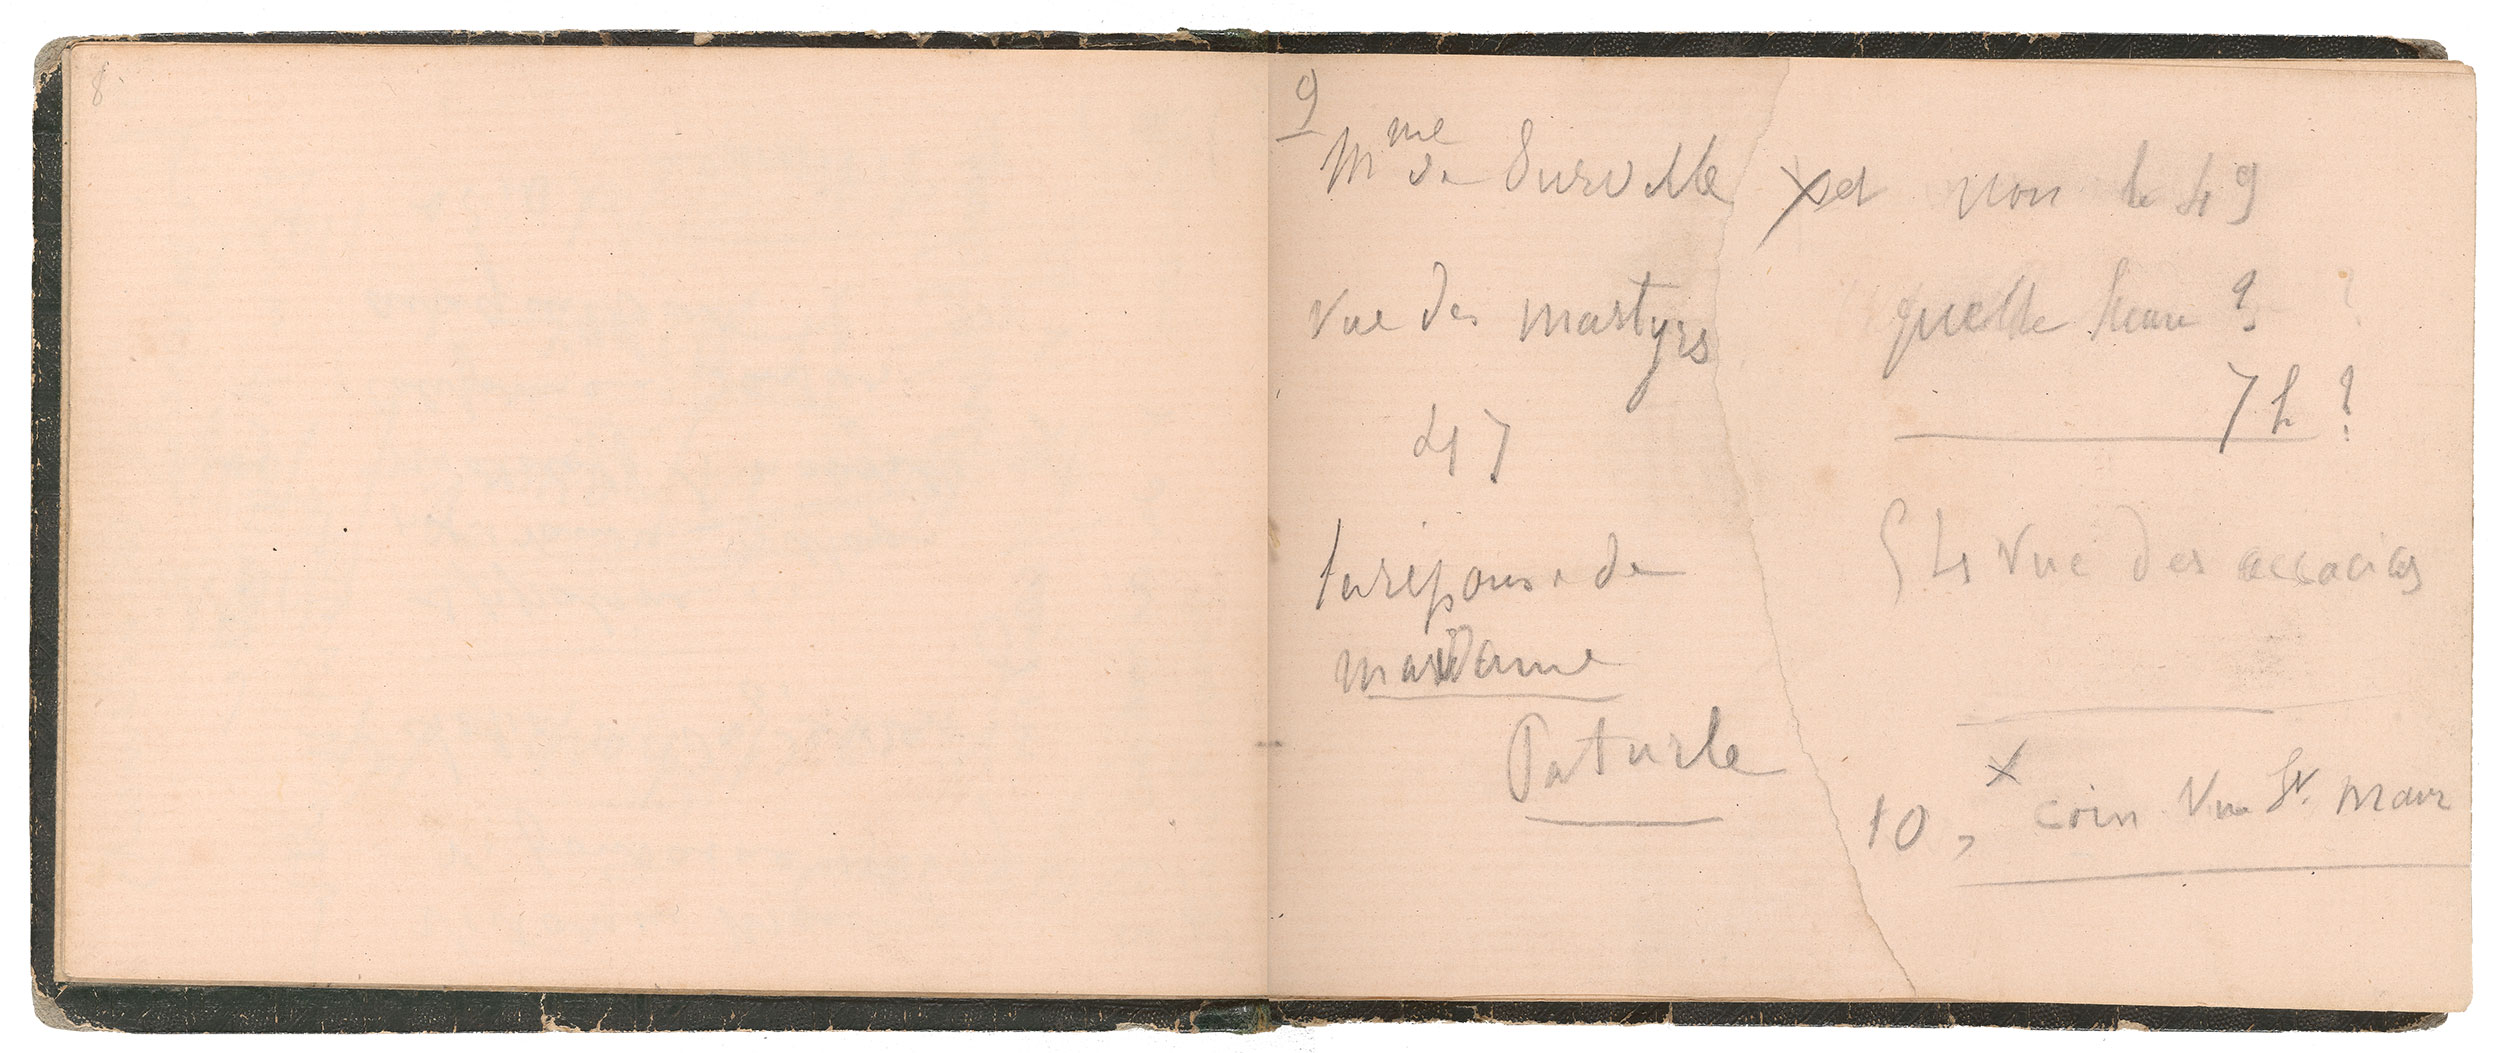 8
9
Mme de Surville
rue des martyrs
47
la réponse de
madame
Paturle
x et non le 49
quelle heure ?
7 h ?
54 rue des associés
10, x coin rue St. Maur